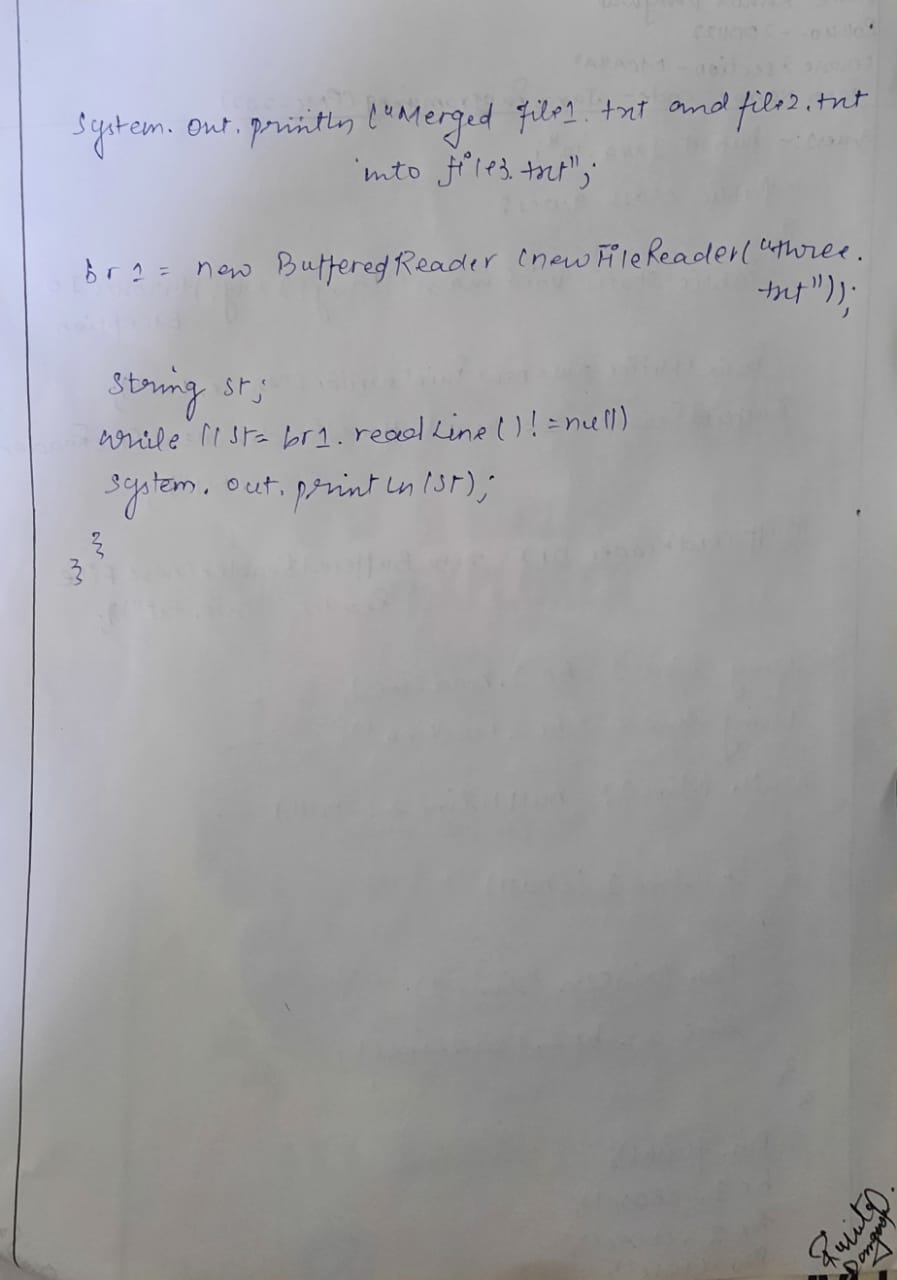 System. out. println ("Merged file1. txt and file2. txt
into file3. txt";
br1 = new BufferedReader (new FileReader("three.
txt"));
String st;
while ((st= br1. readLine()!=null)
System. out. println (st);
}
}